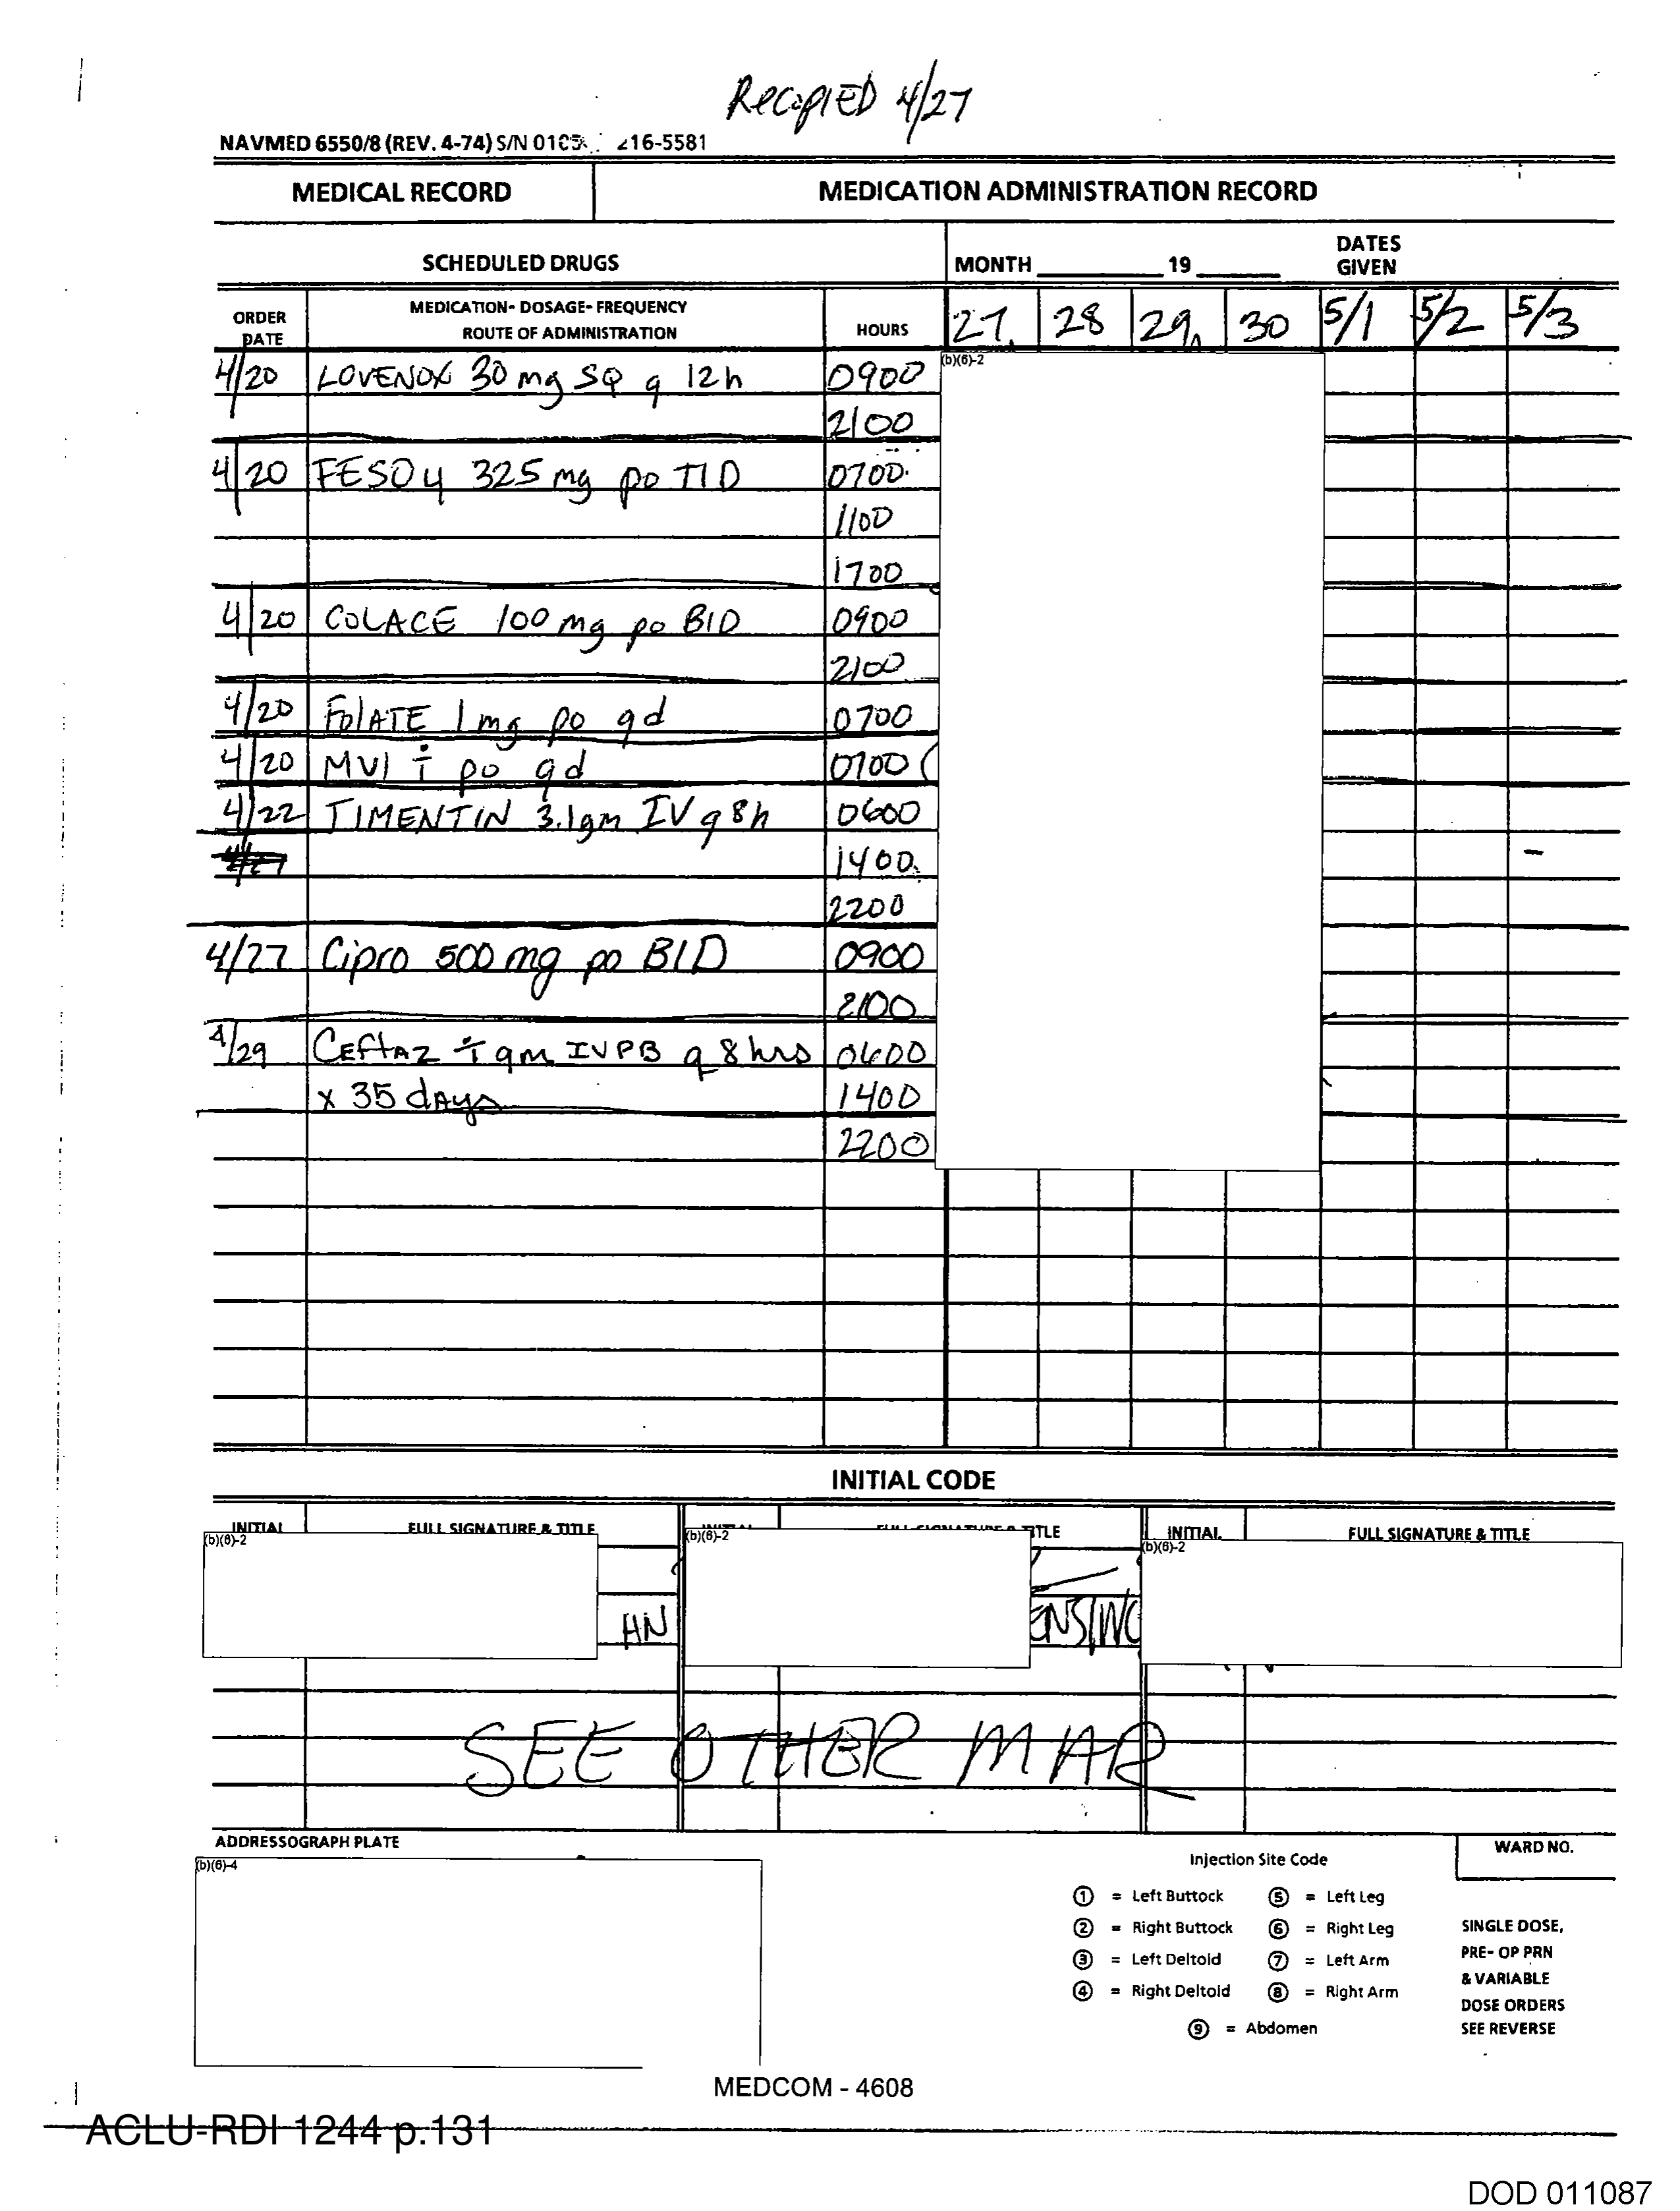 RECOPIED 4/27
NAVMED 6550/8 (REV. 4-74) S/N 0105 216-5581
MEDICAL RECORD MEDICATION ADMINISTRATION RECORD
SCHEDULED DRUGS MONTH 19 DATES GIVEN
ORDER DATE MEDICATION- DOSAGE- FREQUENCY ROUTE OF ADMINISTRATION HOURS 27 28 29 30 5/1 5/2 5/3
(b)(6)-2
4/20 LOVENOX 30 mg SQ q 12h 0900
2100
4/20 FESO4 325 mg po TID 0700
1100
1700
4/20 COLACE 100 mg po BID 0900
2100
4/20 FOLATE 1 mg po qd 0700
4/20 MVI i po qd 0700
4/22 TIMENTIN 3.1gm IV q 8h 0600
1400
2200
4/27 Cipro 500 mg po BID 0900
2100
4/29 CEFTAZ i gm IVPB q 8 hrs 0600
x 35 days 1400
2200
INITIAL CODE
INITIAL FULL SIGNATURE & TITLE INITIAL FULL SIGNATURE & TITLE INITIAL FULL SIGNATURE & TITLE
(b)(6)-2 (b)(6)-2 (b)(6)-2
HN ENS/NC
SEE OTHER MAR
ADDRESSOGRAPH PLATE
(b)(6)-4
WARD NO.
Injection Site Code
1 = Left Buttock 5 = Left Leg
2 = Right Buttock 6 = Right Leg
3 = Left Deltoid 7 = Left Arm
4 = Right Deltoid 8 = Right Arm
9 = Abdomen
SINGLE DOSE,
PRE- OP PRN
& VARIABLE
DOSE ORDERS
SEE REVERSE
MEDCOM - 4608
ACLU-RDI 1244 p.131
DOD 011087